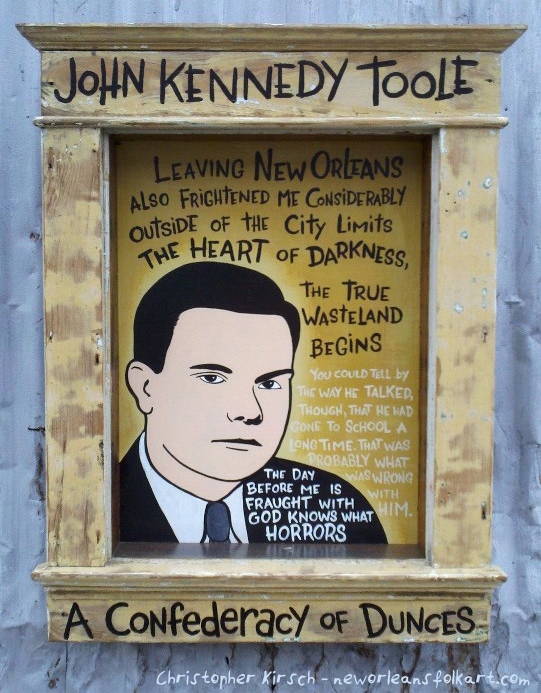 JOHN KENNEDY TOOLE
LEAVING NEW ORLEANS
ALSO FRIGHTENED ME CONSIDERABLY
OUTSIDE OF THE CITY LIMITS
THE HEART OF DARKNESS,
THE TRUE
WASTELAND
BEGINS
YOU COULD TELL BY
THE WAY HE TALKED,
THOUGH, THAT HE HAD
GONE TO SCHOOL A
LONG TIME. THAT WAS
PROBABLY WHAT
WAS WRONG
WITH
HIM.
THE DAY
BEFORE ME IS
FRAUGHT WITH
GOD KNOWS WHAT
HORRORS
A CONFEDERACY OF DUNCES
Christopher Kirsch - neworleansfolkart.com